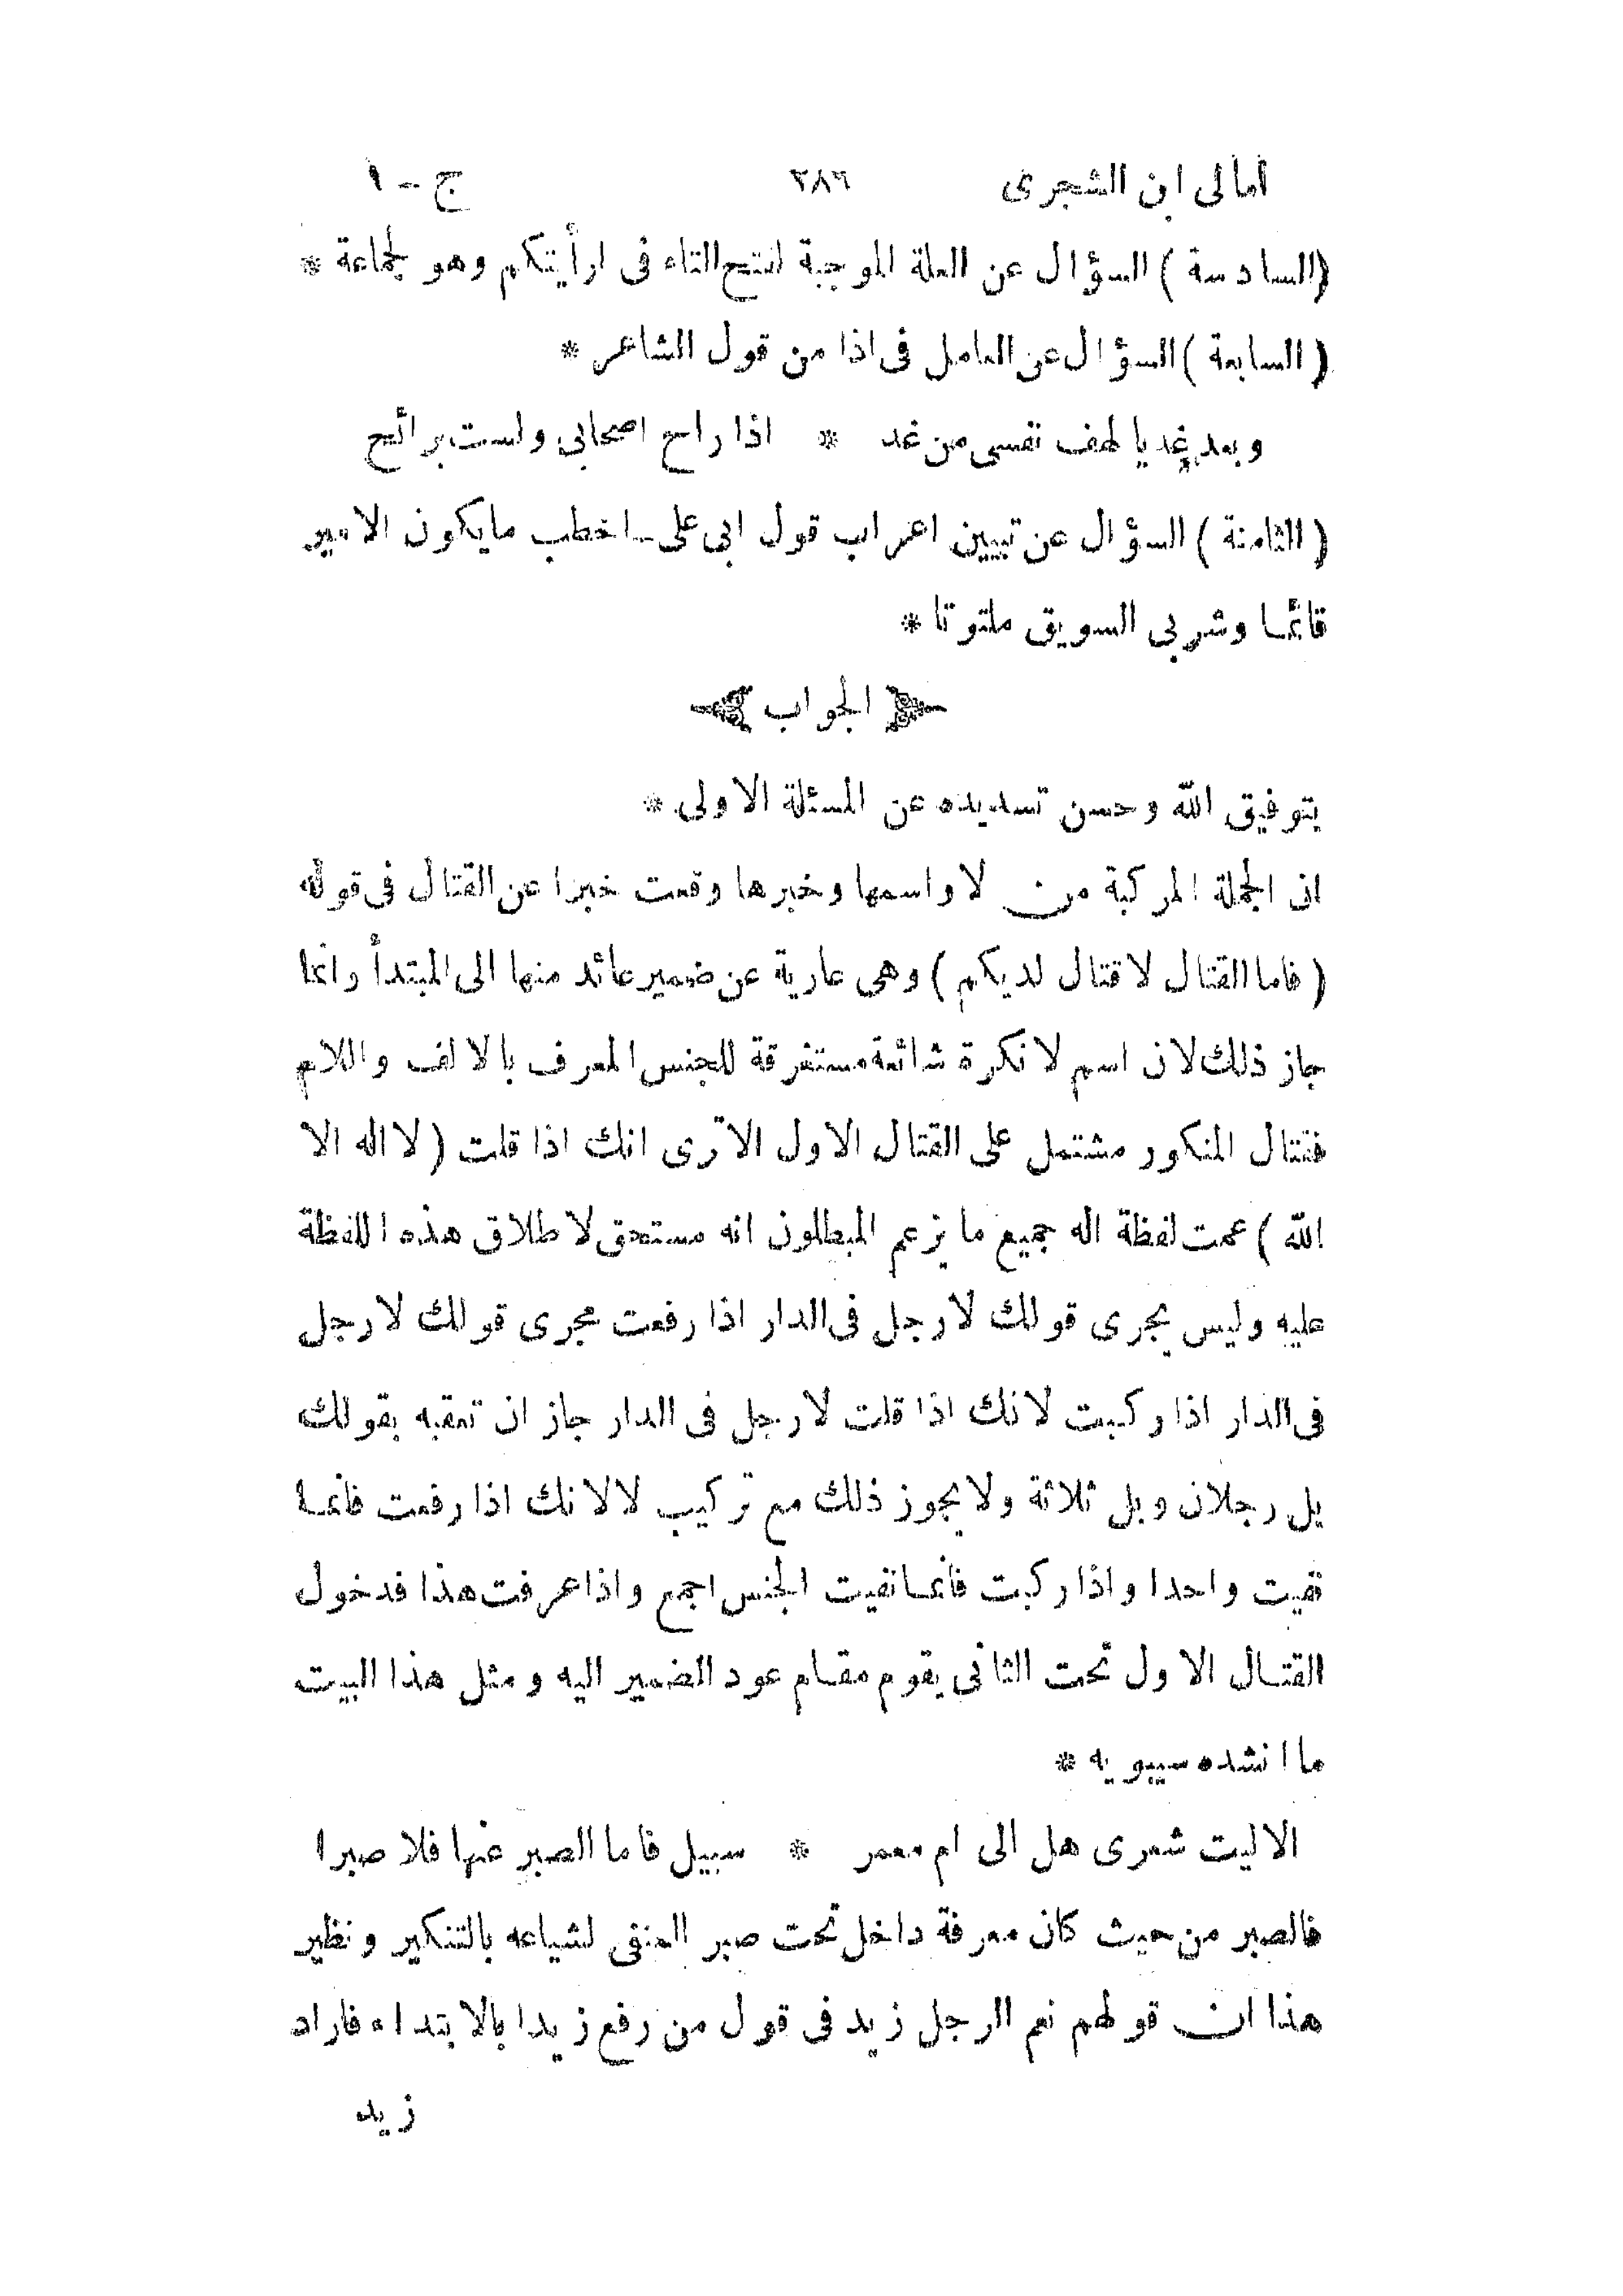 امالى ابن الشجرى ٢٨٦ ج - ١
(السادسة) السؤال عن العلة الموجبة لفتح التاء فى ارأيتكم وهو لجماعة *
(السابعة) السؤال عن العامل فى اذا من قول الشاعر *
وبعد غد يا لهف نفسى من غد * اذا راح اصحابى ولست برائح
(الثامنة) السؤال عن تبيين اعراب قول ابى على - اخطب ما يكون الامير
قائما وشربى السويق ملتوتا *
الجواب
بتوفيق الله وحسن تسديده عن المسئلة الاولى *
ان الجملة المركبة من لا واسمها وخبرها وقعت خبرا عن القتال فى قوله
(فاما القتال لا قتال لديكم) وهى عارية عن ضمير عائد منها الى المبتدأ وانما
جاز ذلك لان اسم لا نكرة شائعة مستغرقة للجنس المعرف بالالف واللام
فقتال المنكور مشتمل على القتال الاول الا ترى انك اذا قلت (لا اله الا
الله) عمت لفظة اله جميع ما يزعم المبطلون انه مستحق لاطلاق هذه اللفظة
عليه وليس يجرى قولك لا رجل فى الدار اذا رفعت مجرى قولك لا رجل
فى الدار اذا ركبت لانك اذا قلت لا رجل فى الدار جاز ان تعقبه بقولك
بل رجلان وبل ثلاثة ولا يجوز ذلك مع تركيب لا لانك اذا رفعت فانما
نفيت واحدا واذا ركبت فانما نفيت الجنس اجمع واذا عرفت هذا فدخول
القتال الاول تحت الثانى يقوم مقام عود الضمير اليه ومثل هذا البيت
ما انشده سيبويه *
الا ليت شعرى هل الى ام معمر * سبيل فاما الصبر عنها فلا صبرا
فالصبر من حيث كان معرفة داخل تحت صبر المنفى لشياعه بالتنكير ونظير
هذا ان قولهم نعم الرجل زيد فى قول من رفع زيدا بالابتداء فاراد
زيد